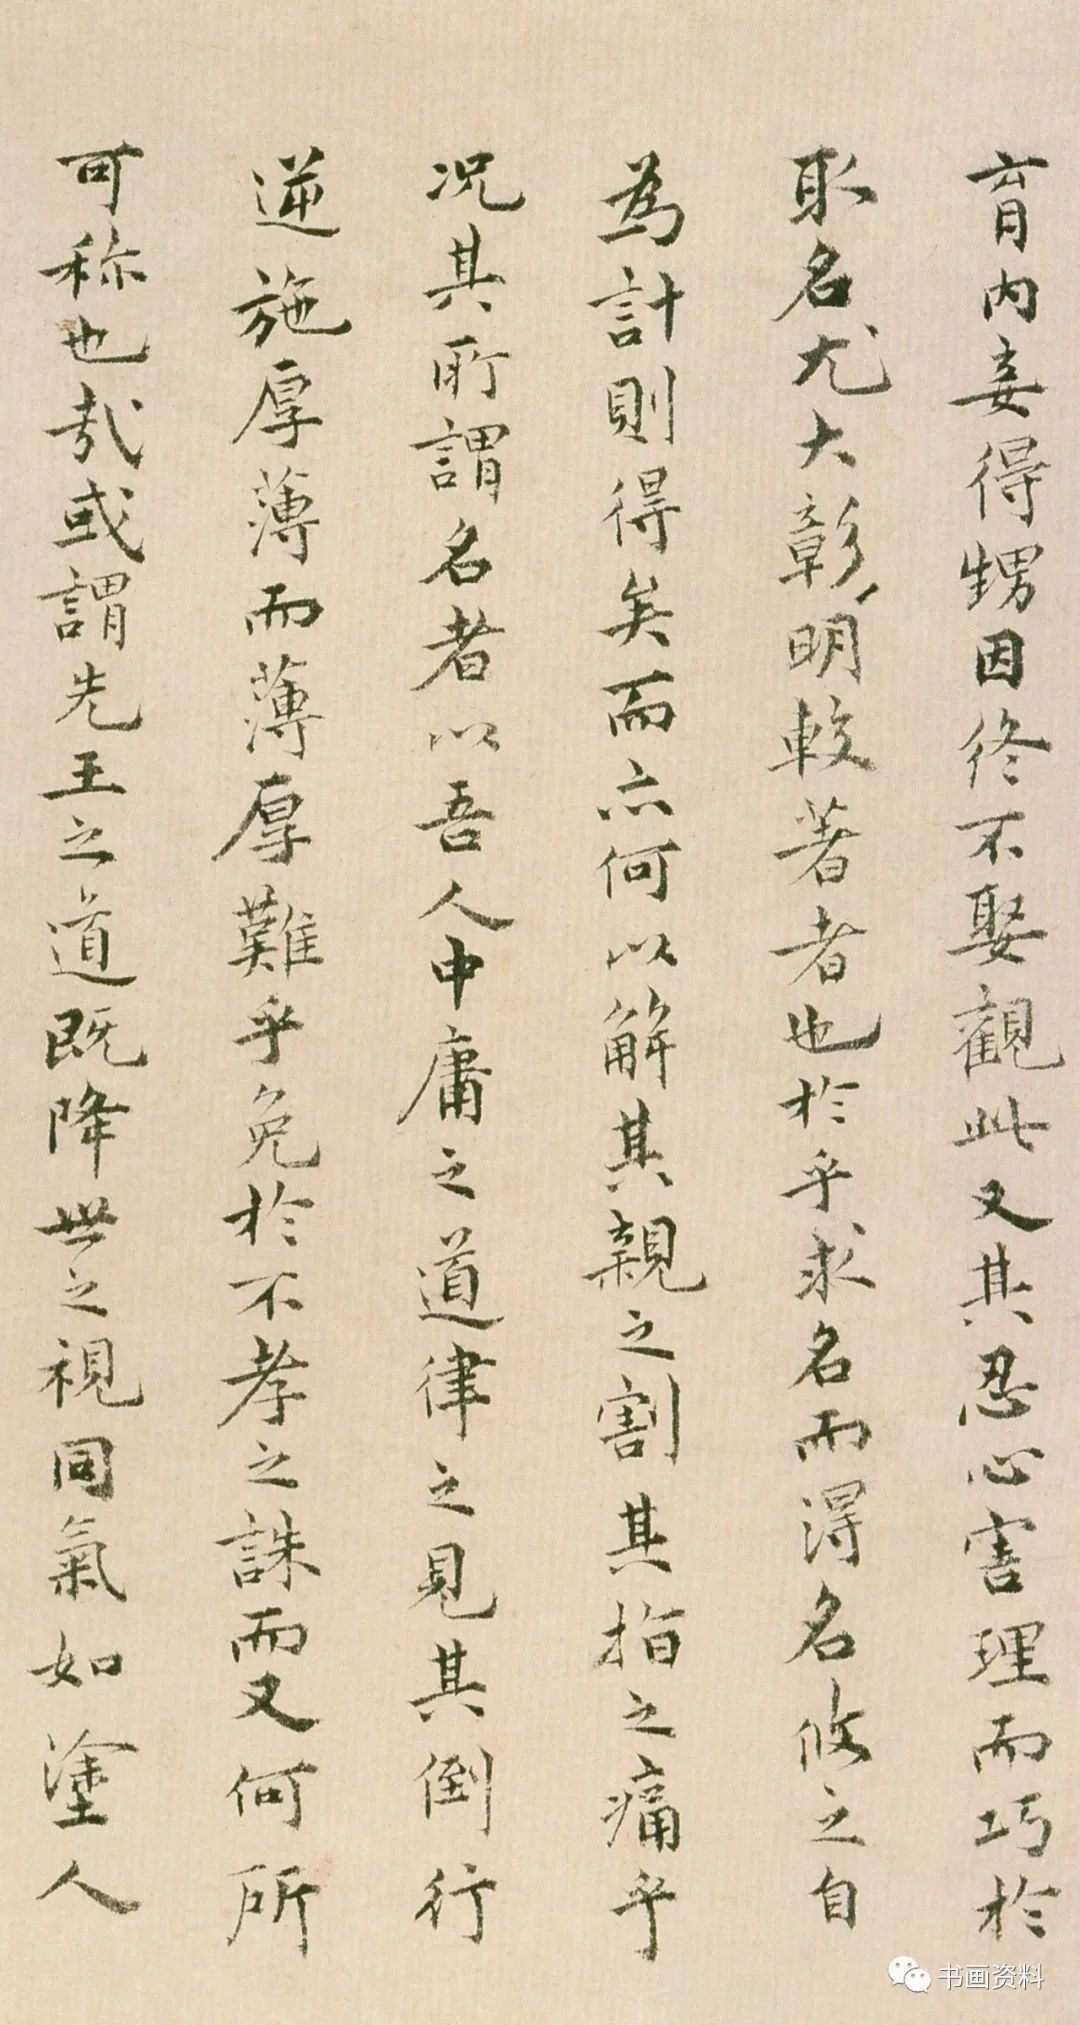 育內妾得甥因終不娶觀此又其忍心害理而巧於
取名尤大彰明較著者也於乎求名而得名攸之自
為計則得矣而亦何以解其親之割其指之痛乎
况其所謂名者以吾人中庸之道律之見其倒行
逆施厚薄而薄厚難乎免於不孝之誅而又何所
可称也哉或謂先王之道既降世之視同氣如塗人
书画资料